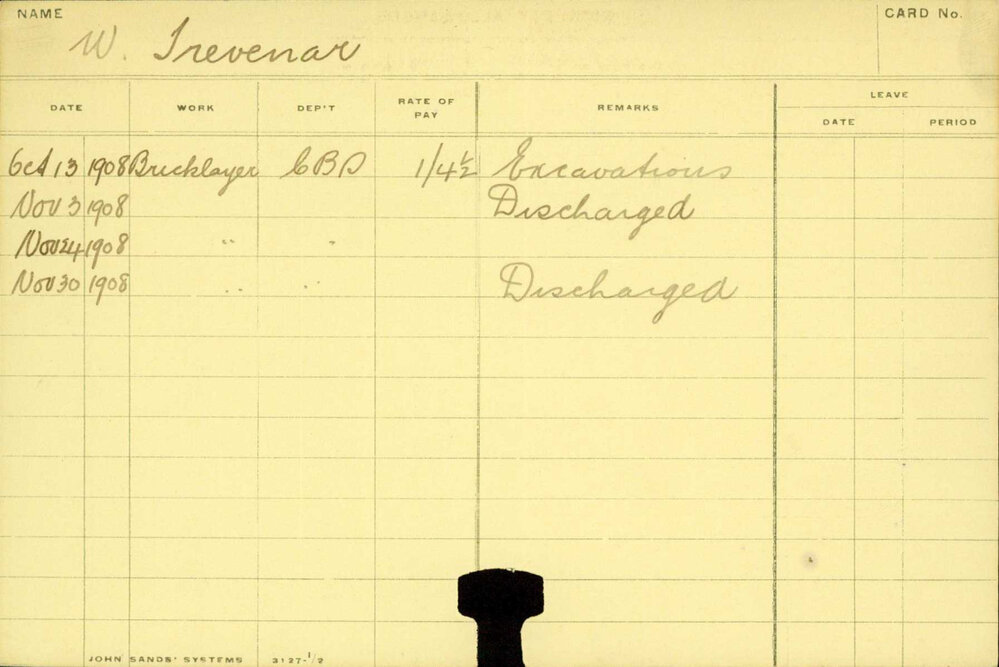 NAME CARD No.
W. Trevenar
DATE WORK DEP'T RATE OF PAY REMARKS LEAVE
DATE PERIOD
Oct 13 1908 Bricklayer CBD 1/4½ Excavations
Nov 3 1908 Discharged
Nov 24 1908 " "
Nov 30 1908 " " Discharged
JOHN SANDS' SYSTEMS 3127-1/2